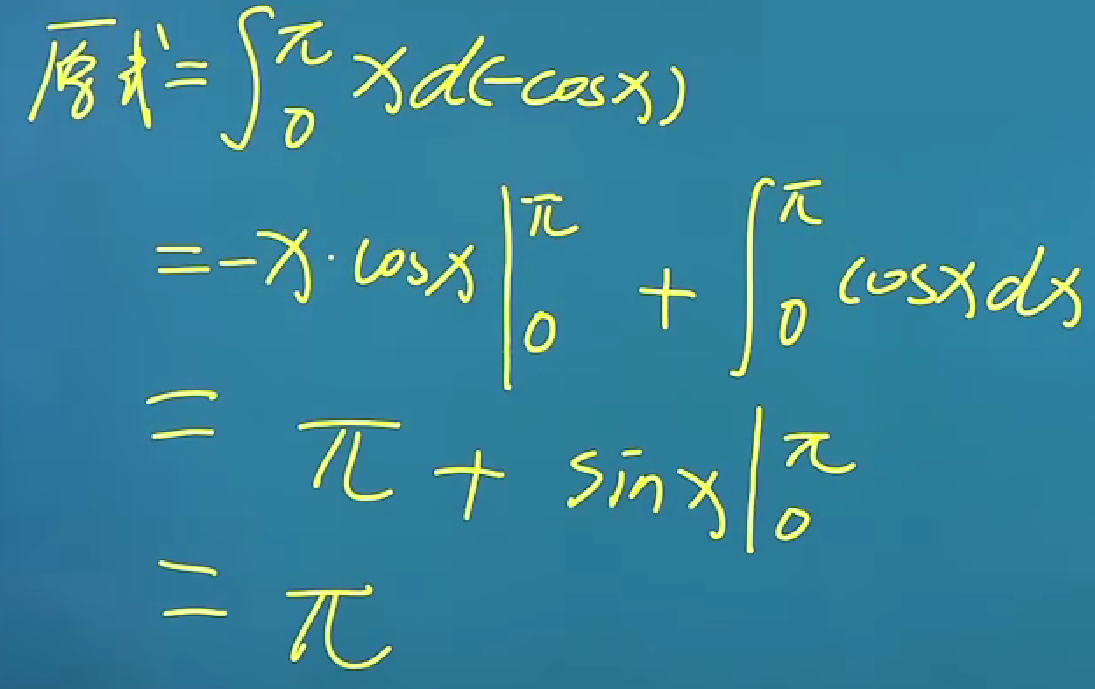 原式=∫₀^π x d(-cosx)
=-x·cosx|₀^π + ∫₀^π cosx dx
= π + sinx|₀^π
= π